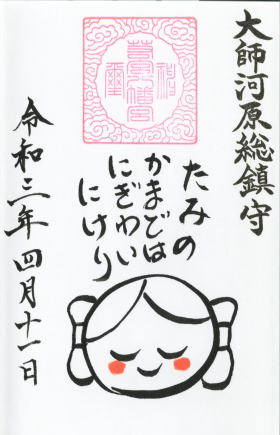 大師河原総鎮守
たみの
かまどは
にぎわい
にけり
令和三年四月十一日